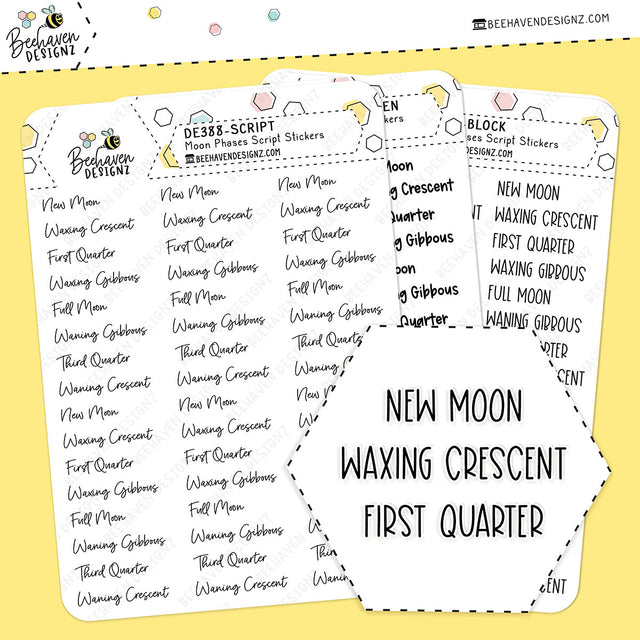 Beehaven
DESIGNZ
BEEHAVENDESIGNZ.COM
Beehaven
DESIGNZ
DE388-SCRIPT
Moon Phases Script Stickers
BEEHAVENDESIGNZ.COM
New Moon
Waxing Crescent
First Quarter
Waxing Gibbous
Full Moon
Waning Gibbous
Third Quarter
Waning Crescent
New Moon
Waxing Crescent
First Quarter
Waxing Gibbous
Full Moon
Waning Gibbous
Third Quarter
Waning Crescent
New Moon
Waxing Crescent
First Quarter
Waxing Gibbous
Full Moon
Waning Gibbous
Third Quarter
Waning Crescent
New Moon
Waxing Crescent
First Quarter
Waxing Gibbous
Full Moon
Waning Gibbous
Third Quarter
Waning Crescent
New Moon
Waxing Crescent
First Quarter
Waxing Gibbous
Full Moon
Waning Gibbous
Waning
New
Waning Crescent
Crescent
Quarter
Gibbous
Gibbous
Quarter
BLOCK
Script Stickers
NEW MOON
WAXING CRESCENT
FIRST QUARTER
WAXING GIBBOUS
FULL MOON
WANING GIBBOUS
NEW MOON
WAXING CRESCENT
FIRST QUARTER